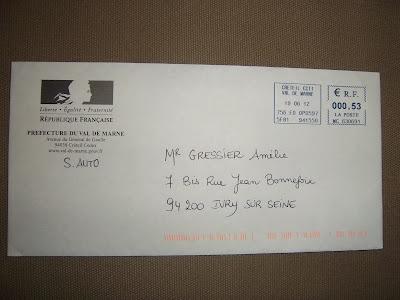 Liberté • Égalité • Fraternité
RÉPUBLIQUE FRANÇAISE
PREFECTURE DU VAL DE MARNE
Avenue du Général de Gaulle
94038 Créteil Cedex
www.val-de-marne.gouv.fr
S. AUTO
CRETEIL CTC1
VAL DE MARNE
10 08 12
756 E0 0P0597
5FB1 941550
€ R.F.
000,53
LA POSTE
MG 630691
Mr GRESSIER Amélie
7 Bis Rue Jean Bonnefoix
94200 IVRY SUR SEINE